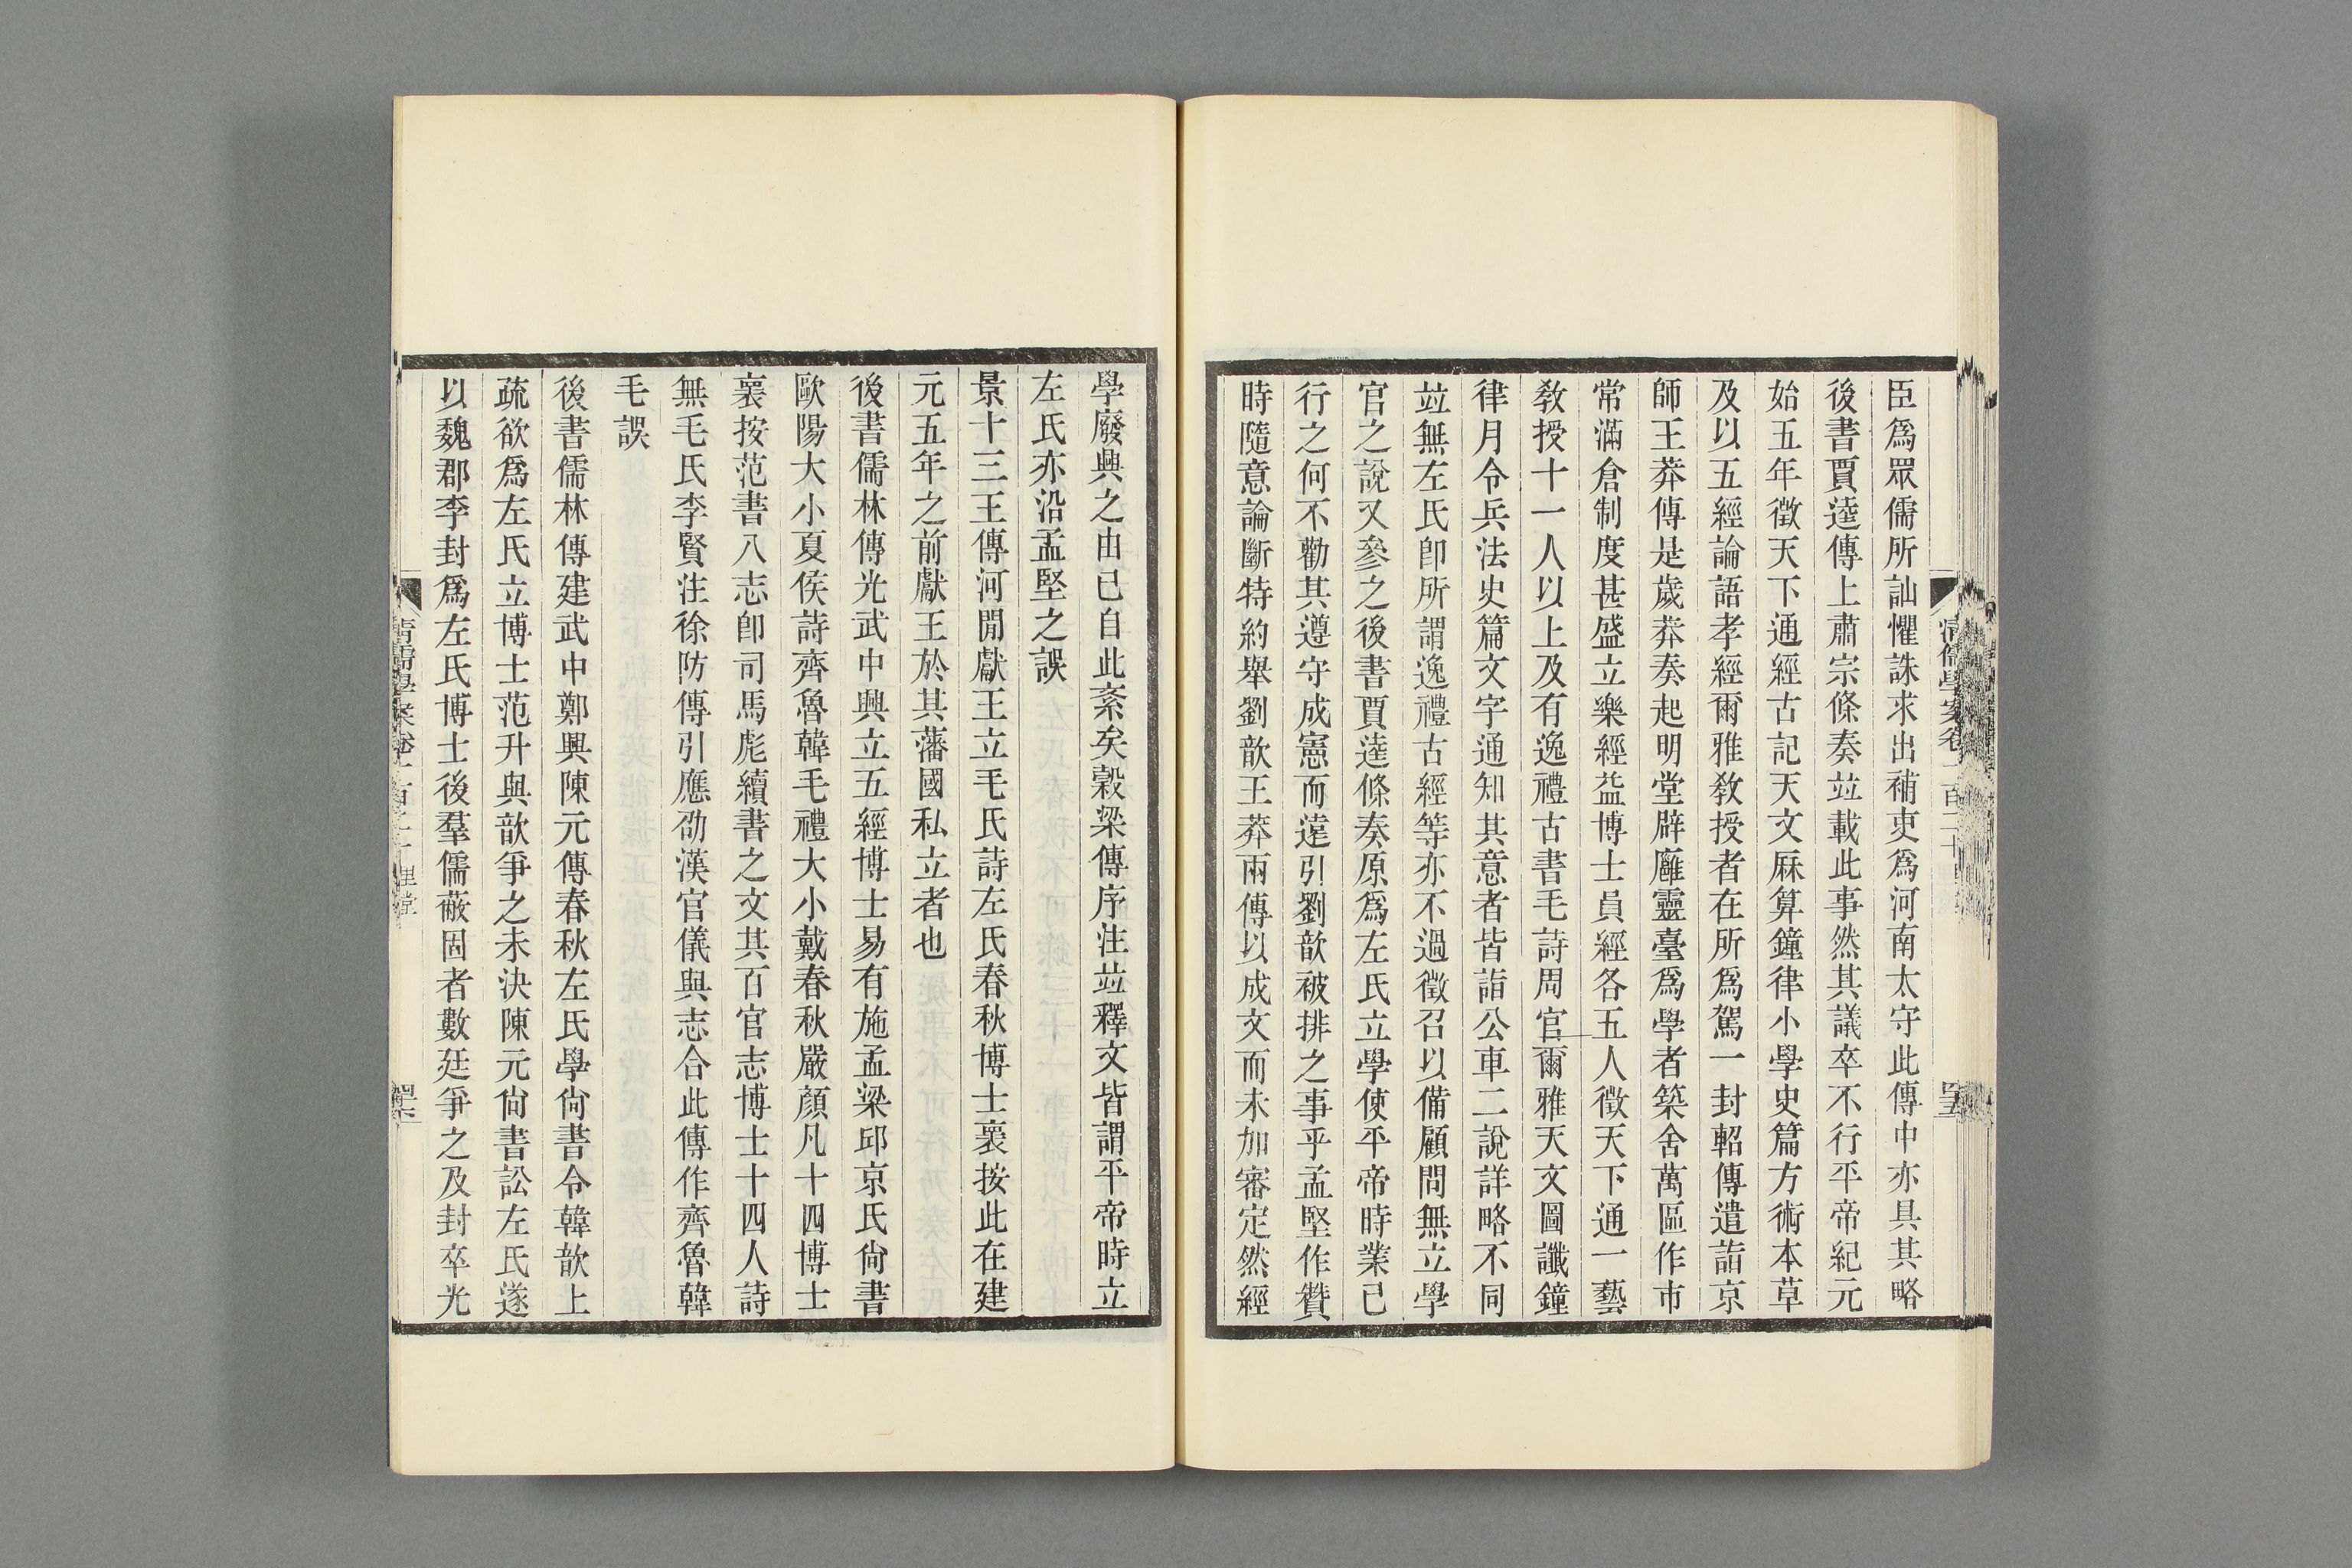 臣爲眾儒所訕懼誅求出補吏爲河南太守此傳中亦具其略
後書賈逵傳上肅宗條奏竝載此事然其議卒不行平帝紀元
始五年徵天下通經古記天文厤算鐘律小學史篇方術本草
及以五經論語孝經爾雅敎授者在所爲駕一封軺傳遣詣京
師王莽傳是歲莽奏起明堂辟廱靈臺爲學者築舍萬區作市
常滿倉制度甚盛立樂經益博士員經各五人徵天下通一藝
敎授十一人以上及有逸禮古書毛詩周官爾雅天文圖讖鐘
律月令兵法史篇文字通知其意者皆詣公車二說詳略不同
竝無左氏卽所謂逸禮古經等亦不過徵召以備顧問無立學
官之說又參之後書賈逵條奏原爲左氏立學使平帝時業已
行之何不勸其遵守成憲而遠引劉歆被排之事乎孟堅作贊
時隨意論斷特約舉劉歆王莽兩傳以成文而未加審定然經
學廢興之由已自此紊矣穀梁傳序注竝釋文皆謂平帝時立
左氏亦沿孟堅之誤
景十三王傳河閒獻王立毛氏詩左氏春秋博士襄按此在建
元五年之前獻王於其藩國私立者也
後書儒林傳光武中興立五經博士易有施孟梁邱京氏尙書
歐陽大小夏侯詩齊魯韓毛禮大小戴春秋嚴顏凡十四博士
襄按范書八志卽司馬彪續書之文其百官志博士十四人詩
無毛氏李賢注徐防傳引應劭漢官儀與志合此傳作齊魯韓
毛誤
後書儒林傳建武中鄭興陳元傳春秋左氏學尙書令韓歆上
疏欲爲左氏立博士范升與歆爭之未決陳元尙書訟左氏遂
以魏郡李封爲左氏博士後羣儒蔽固者數廷爭之及封卒光